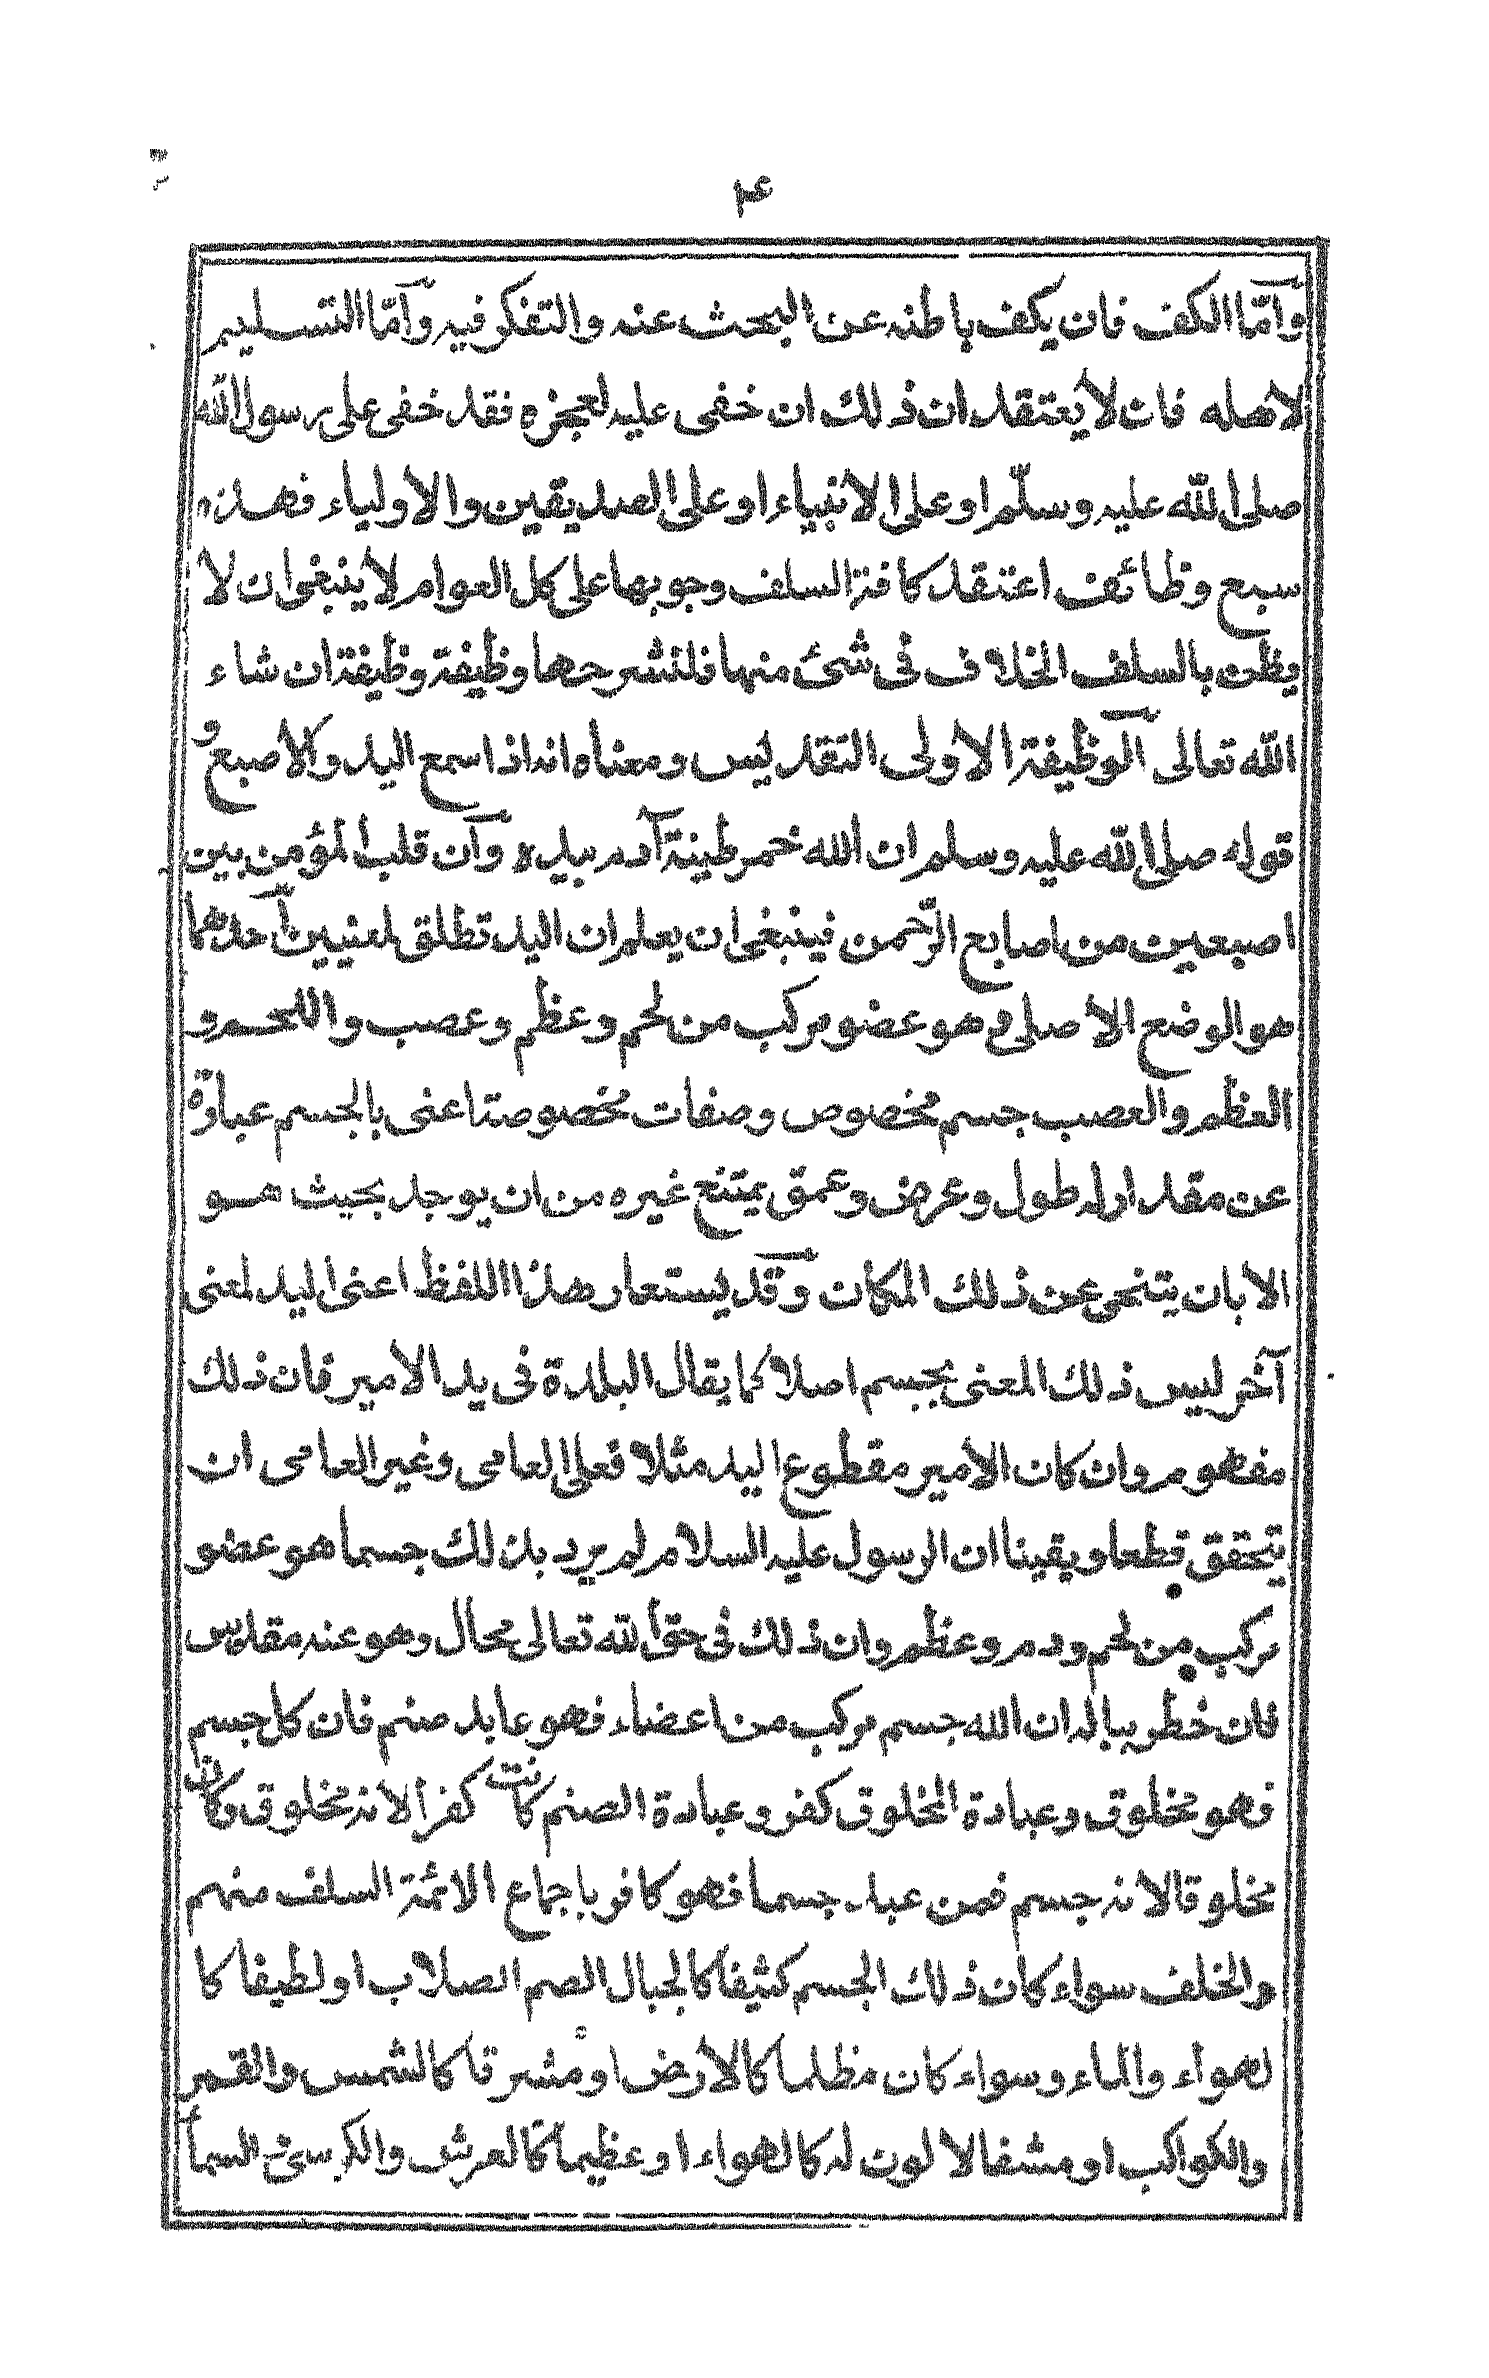 ۴
وأمّا الكف فان يكف باطنه عن البحث عنه والتفكر فيه وأمّا التسليم
لاهله فان لا يعتقد ان ذلك ان خفى عليه لعجزه فقد خفى على رسول الله
صلى الله عليه وسلّم او على الانبياء او على الصديقين والاولياء فهذه
سبع وظائف اعتقد كافة السلف وجوبها على كل العوام لا ينبغى ان لا
يظن بالسلف الخلاف فى شئ منها فلنشرحها وظيفة وظيفة ان شاء
الله تعالى الوظيفة الاولى التقديس ومعناه انه اذا سمع اليد والاصبع و
قوله صلى الله عليه وسلم ان الله خمر طينة آدم بيده وآن قلب المؤمن بين
اصبعين من اصابع الرّحمن فينبغى ان يعلم ان اليد تطلق لمعنيين أحدهما
هو الوضع الاصلى وهو عضو مركب من لحم وعظم وعصب واللحم و
العظم والعصب جسم مخصوص وصفات مخصوصة اعنى بالجسم عبارة
عن مقدار له طول وعرض وعمق يمتنع غيره من ان يوجد بحيث هو
الا بان يتنحى عن ذلك المكان وقد يستعار هذا اللفظ اعنى اليد لمعنى
آخر ليس ذلك المعنى بجسم اصلا كما يقال البلدة فى يد الامير فان ذلك
مفهوم وان كان الامير مقطوع اليد مثلا فعلى العامى وغير العامى ان
يتحقق قطعا ويقينا ان الرسول عليه السلام لم يرد بذلك جسما هو عضو
مركب من لحم ودم وعظم وان ذلك فى حق الله تعالى محال وهو عنه مقدس
فان خطر بباله ان الله جسم مركب من اعضاء فهو عابد صنم فان كل جسم
فهو مخلوق وعبادة المخلوق كفر وعبادة الصنم كانت كفرا لانه مخلوق وكان
مخلوقا لانه جسم فمن عبد جسما فهو كافر باجماع الائمة السلف منهم
والخلف سواء كان ذلك الجسم كثيفا كالجبال الصم الصلاب او لطيفا كا
لهواء والماء وسواء كان مظلما كالارض او مشرقا كالشمس والقمر
والكواكب او مشفا لا لون له كالهواء او عظيما كالعرش والكرسى والسماء